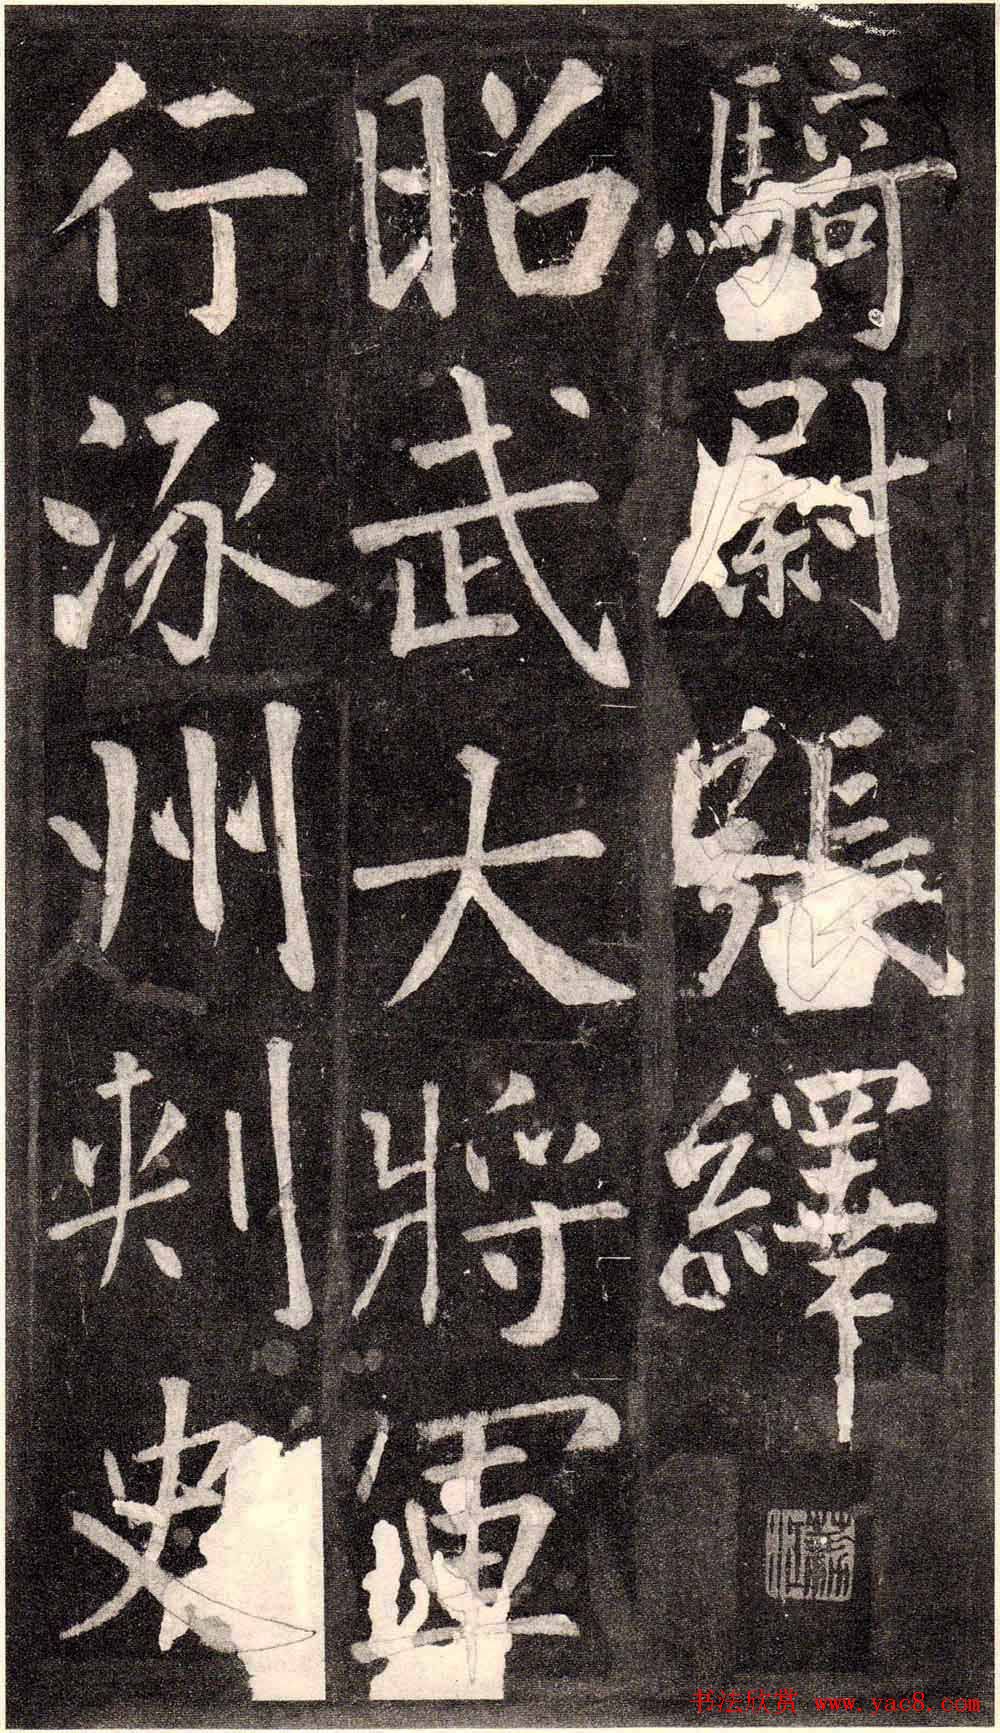 騎尉張繹
昭武大將軍
行涿州刺史
书法欣赏 www.yac8.com